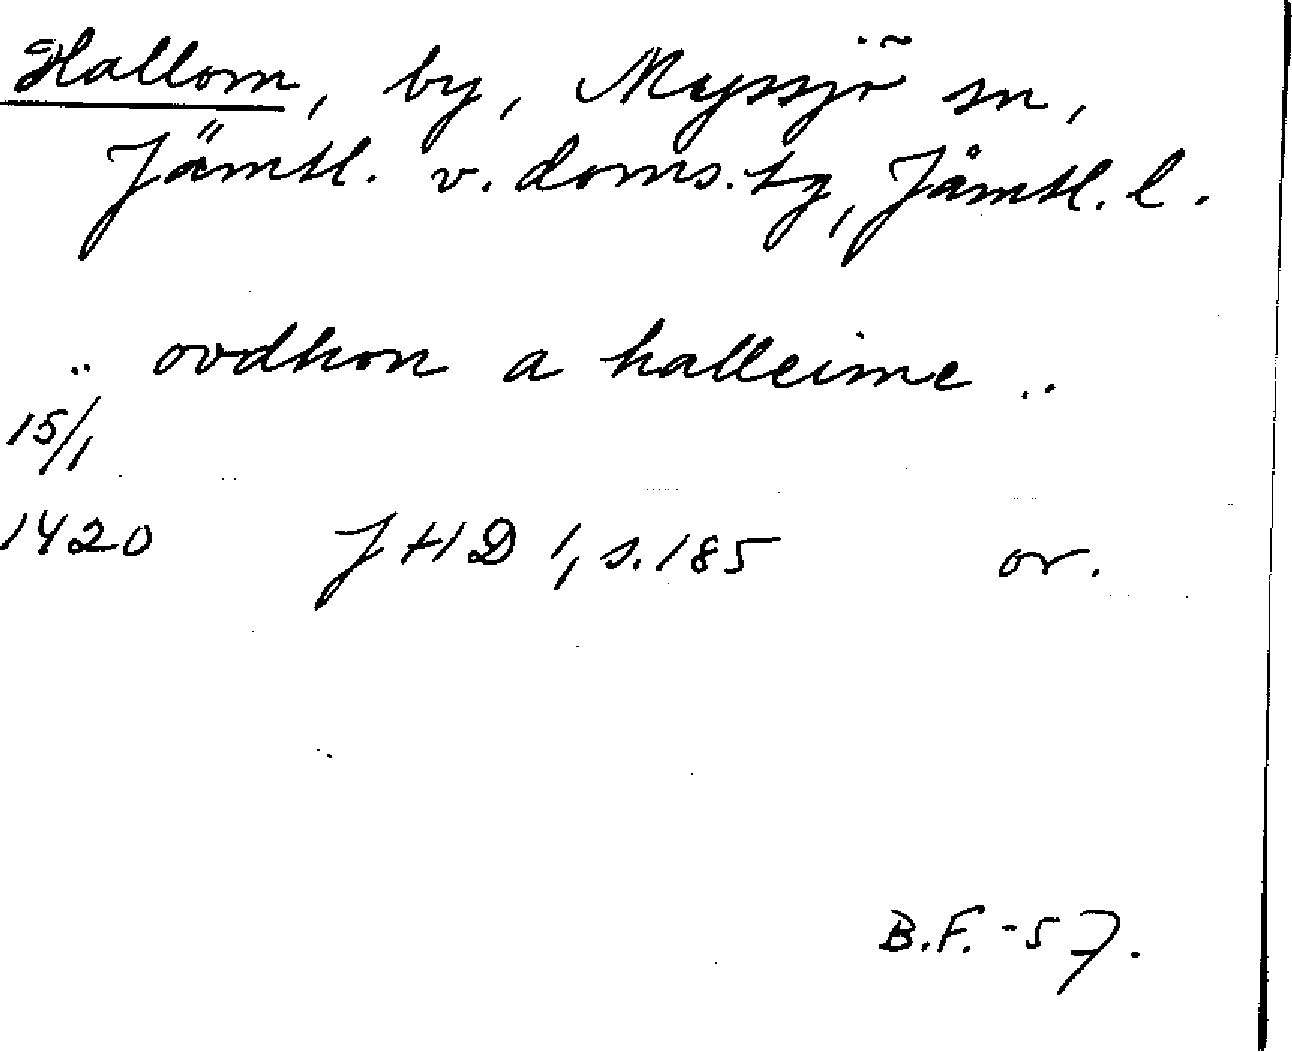 Hallom, by, Myssjö sn,
Jämtl. v. doms.tg, Jämtl. l.
.. ovdhon a halleime ..
15/1
1420 JHD 1, s. 185 or.
B.F. -57.